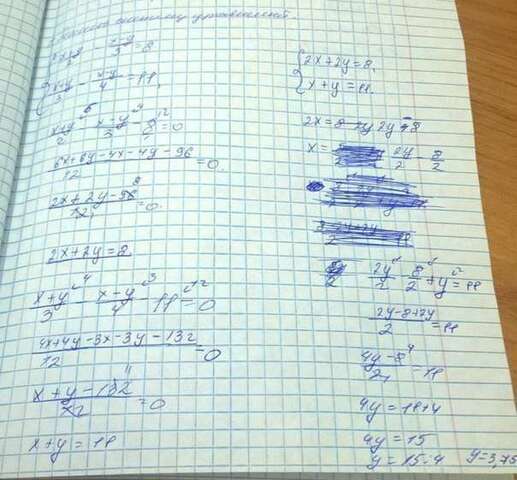 систему уравнений.
x+y/2 - x-y/3 = 8
x+y/3 - x-y/4 = 11,
x+y/2 - x-y/3 - 8 = 0
6x+6y-4x-4y-96/12 = 0.
2x+2y-96/12 = 0.
2x+2y=8
x+y/3 - x-y/4 - 11 = 0
4x+4y-3x-3y-132/12 = 0
x+y-132/12 = 0
x+y=11
{2x+2y=8,
x+y=11.
2x=8
x= 2y/2 - 8/2
2y/2 - 8/2 + y = 11
2y-8+2y/2 = 11
4y-8/2 = 11
4y=11+4
4y=15
y=15:4 y=3,75